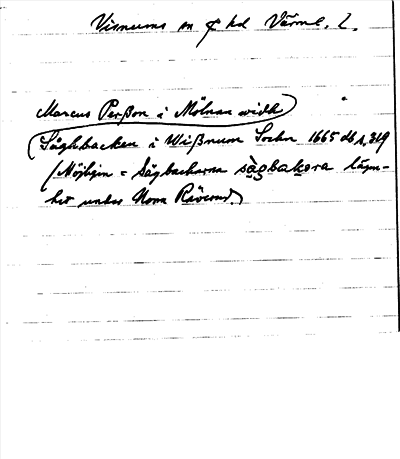 Visnums sn & hd Värml. l.
Marcus Perßon i Mölnan widh
Såghbacken i Wißnum Sockn 1665 db s. 319
(Möjligen = Sågbackarna sàgbakųra lägen-
het under Norra Råövud.)